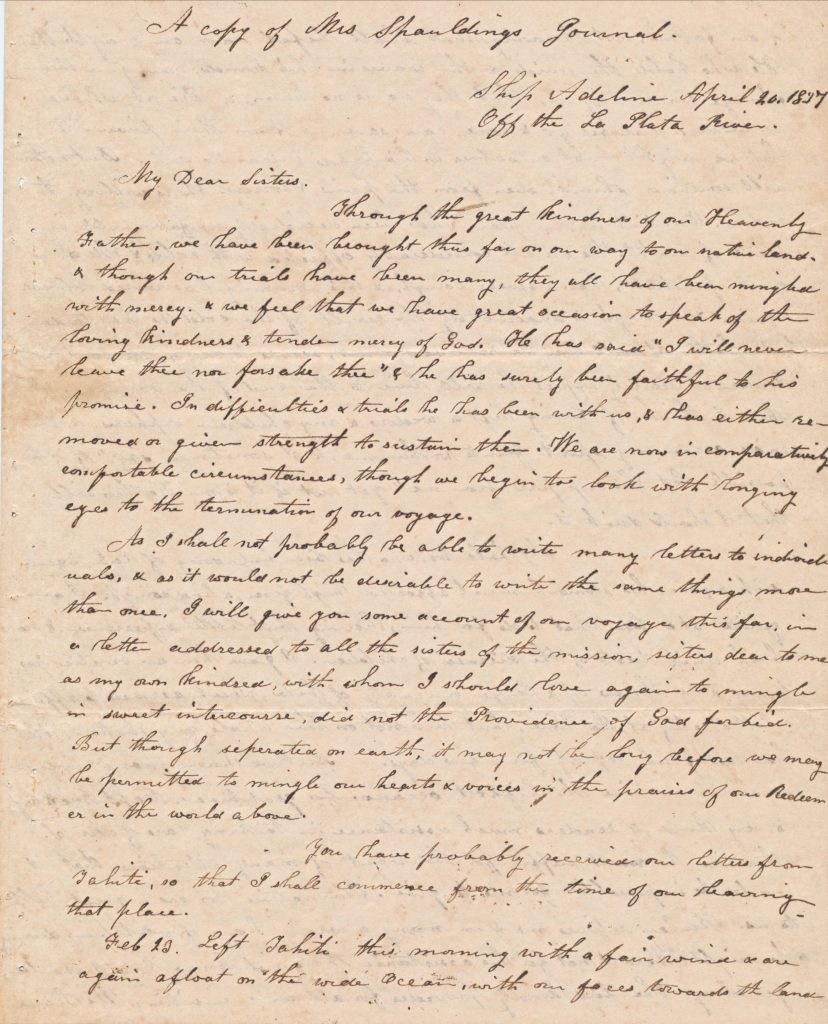 A copy of Mrs Spauldings Journal.
Ship Adeline April 20. 1837
Off the La Plata River.
My Dear Sisters.
Through the great kindness of our Heavenly
Father, we have been brought thus far on our way to our native land.
& though our trials have been many, they all have been mingled
with mercy. & we feel that we have great occasion to speak of the
loving kindness & tender mercy of God. He has said "I will never
leave thee nor forsake thee" & he has surely been faithful to his
promise. In difficulties & trials he has been with us, & has either re-
moved or given strength to sustain them. We are now in comparatively
comfortable circumstances, though we begin to look with longing
eyes to the termination of our voyage.
As I shall not probably be able to write many letters to individ
uals, & as it would not be desirable to write the same things more
than once, I will give you some account of our voyage thus far, in
a letter addressed to all the sisters of the mission, sisters dear to me
as my own kindred, with whom I should love again to mingle
in sweet intercourse, did not the Providence of God forbid.
But though seperated on earth, it may not be long before we may
be permitted to mingle our hearts & voices in the praises of our Redeem
er in the world above.
You have probably received our letters from
Tahiti, so that I shall commence from the time of our leaving
that place.
Feb 23. Left Tahiti this morning with a fair wind & are
again afloat on the wide Ocean, with our faces towards the land